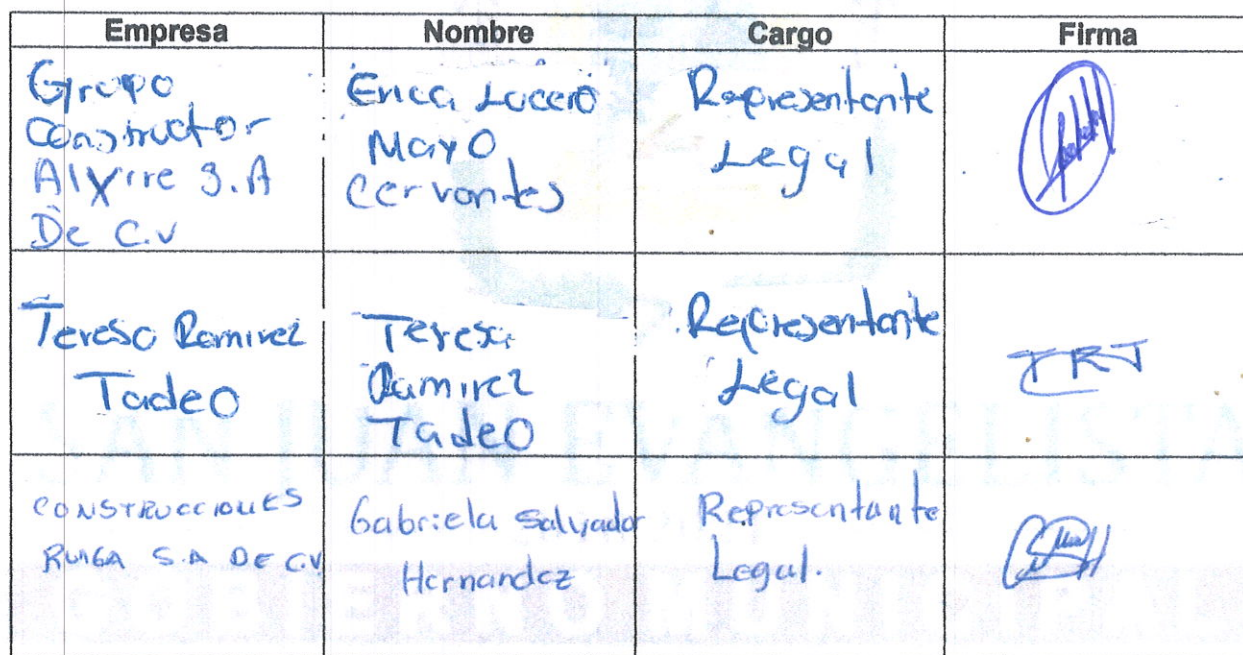 Empresa Nombre Cargo Firma
Grupo
Constructor
Alxire S.A
De C.V
Erica Lucero
Mayo
Cervantes
Representante
Legal
Teresa Ramirez
Tadeo
Teresa
Ramirez
Tadeo
Representante
Legal
TRT
CONSTRUCCIONES
RUIGA S.A DE C.V
Gabriela Salvador
Hernandez
Representante
Legal.
SAN JUAN EVANGELISTA
GOBIERNO MUNICIPAL